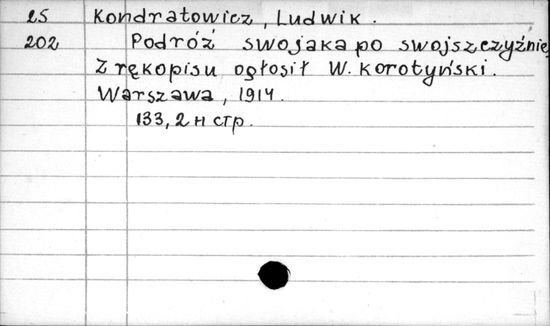 25 Kondratowicz, Ludwik.
202 Podróż swojaka po swojszczyźnie
Z rękopisu ogłosił W. Korotyński.
Warszawa, 1914.
133, 2 н стр.